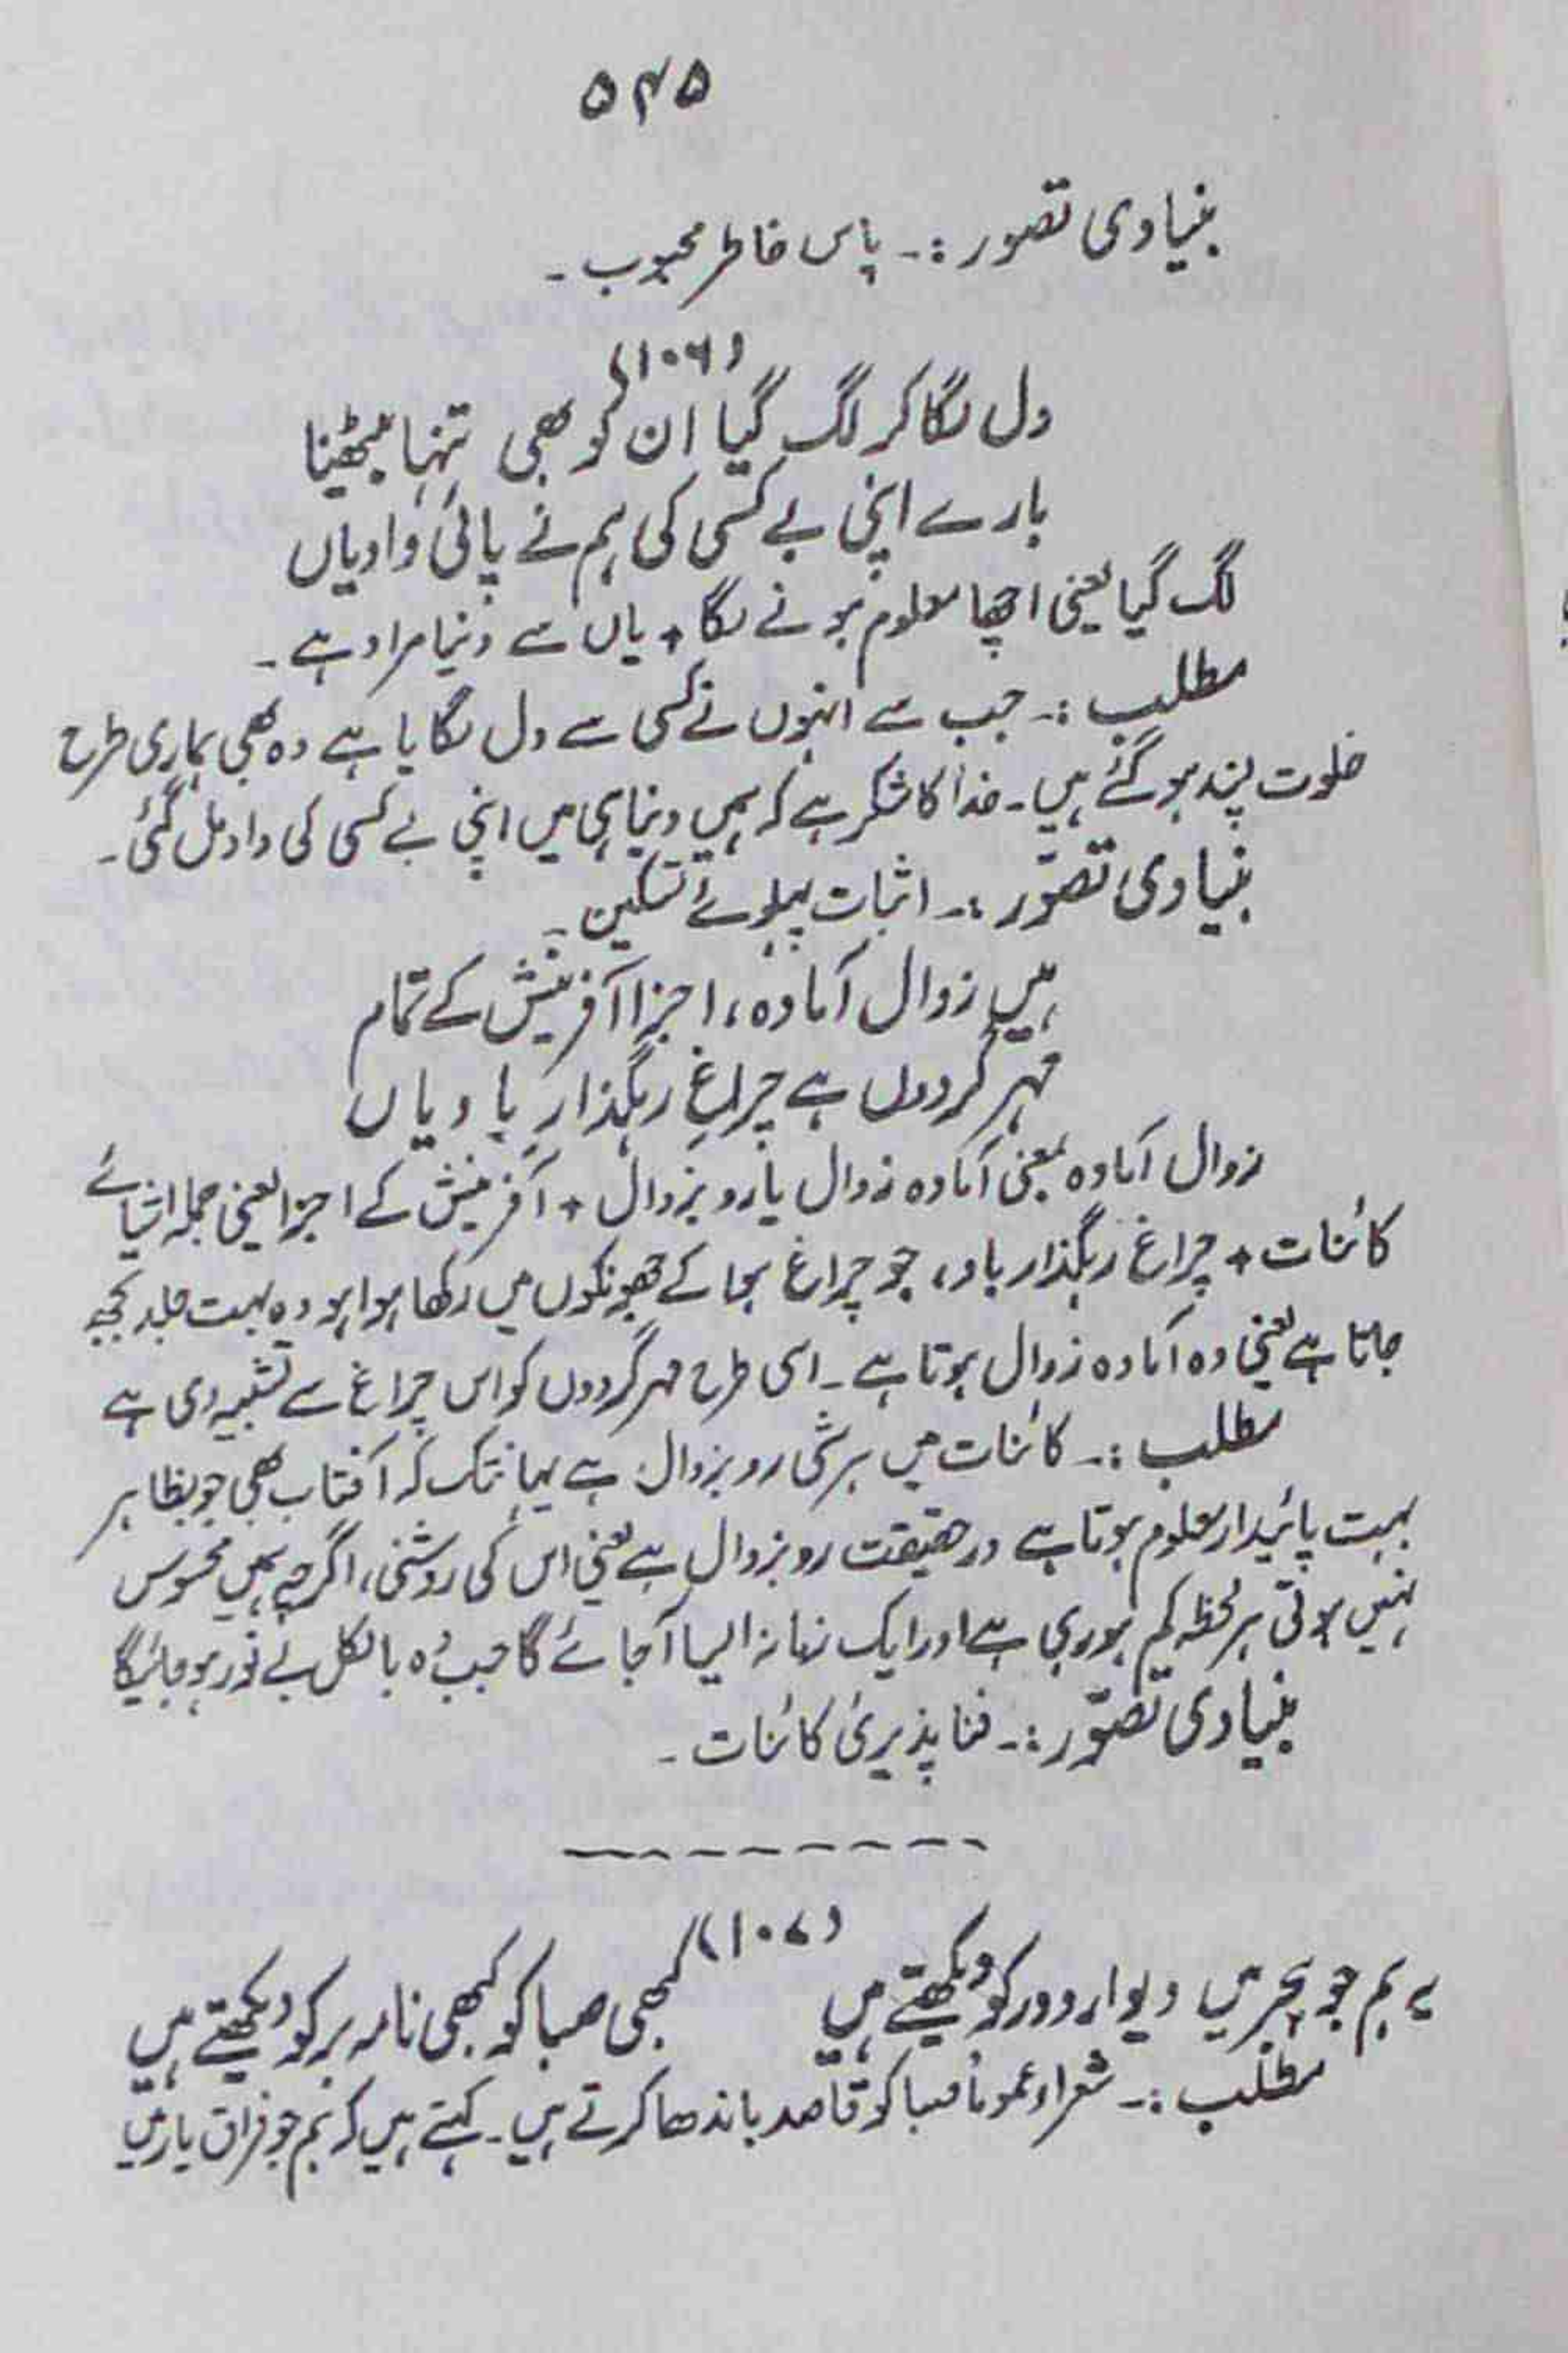 ۵۴۵
بنیادی تصور :۔ پاس خاطر محبوب ۔
(۱۰۶)
دل لگا کر لگ گیا ان کو بھی تنہا بیٹھنا
بارے اپنی بے کسی کی ہم نے پائی داد یاں
لگ گیا یعنی اچھا معلوم ہونے لگا + یاں سے دنیا مراد ہے ۔
مطلب :۔ جب سے انہوں نے کسی سے دل لگایا ہے وہ بھی ہماری طرح
خلوت پسند ہو گئے ہیں ۔ خدا کا شکر ہے کہ ہمیں دنیا ہی میں اپنی بے کسی کی داد مل گئی ۔
بنیادی تصوّر :۔ اثبات پہلوئے تسکین ۔
ہیں زوال آمادہ، اجزا آفرینش کے تمام
مہر گردوں ہے چراغِ رہگذارِ باد یاں
زوال آمادہ بمعنی آمادہ زوال یا رو بزوال + آفرینش کے اجزا یعنی جملہ اشیائے
کائنات + چراغ رہگذار باد، جو چراغ ہوا کے جھونکوں میں رکھا ہوا ہو وہ بہت جلد بجھ
جاتا ہے یعنی وہ آمادہ زوال ہوتا ہے ۔ اسی طرح مہر گردوں کو اس چراغ سے تشبیہ دی ہے
مطلب :۔ کائنات میں ہر شی رو بزوال ہے یہانتک کہ آفتاب بھی جو بظاہر
بہت پائیدار معلوم ہوتا ہے درحقیقت رو بزوال ہے یعنی اس کی روشنی، اگرچہ ہمیں محسوس
نہیں ہوتی ہر لحظہ کم ہو رہی ہے اور ایک زمانہ ایسا آجائے گا جب وہ بالکل بے نور ہو جائیگا
بنیادی تصوّر :۔ فنا پذیریٔ کائنات ۔
(۱۰۷)
یہ ہم جو ہجر میں دیوار و در کو دیکھتے ہیں کبھی صبا کو کبھی نامہ بر کو دیکھتے ہیں
مطلب :۔ شعراء عموماً صبا کو قاصد باندھا کرتے ہیں ۔ کہتے ہیں کہ ہم جو فراق یار میں